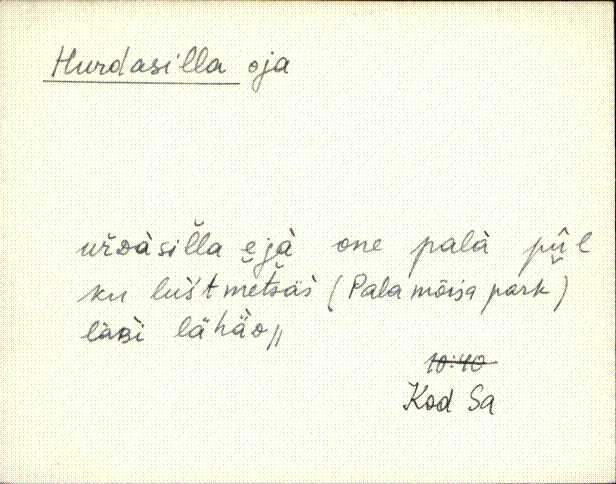 Hurdasilla oja
uřᴅàsiľla ejà one palà pǖl
ku lùšt metšäs̀ (Pala mõisa park)
läʙì lähäᴅ„
10:40
Kod Sa